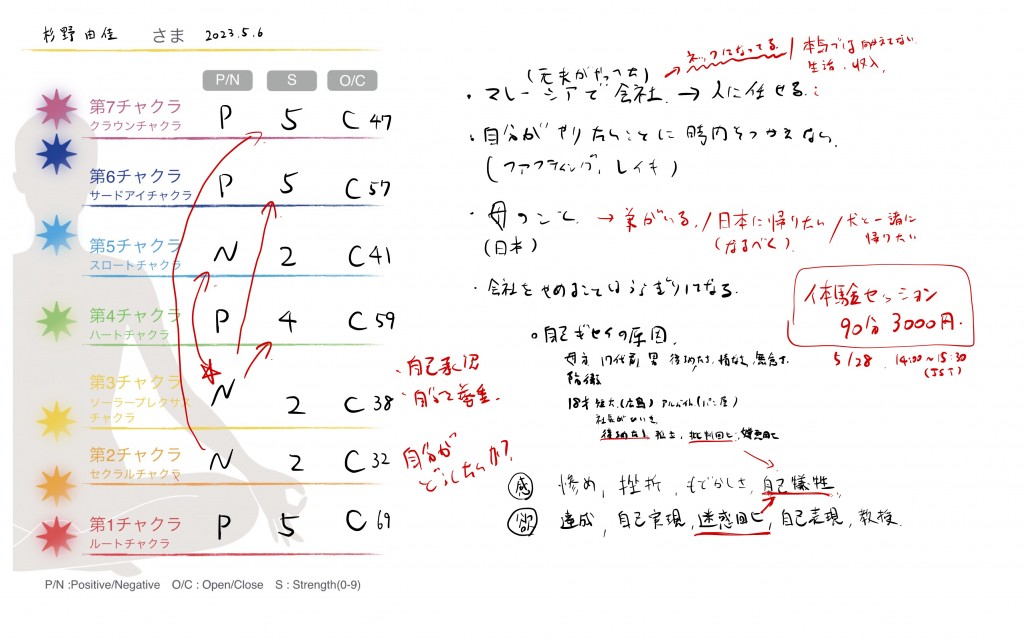 杉野 由佳 さま 2023.5.6
P/N S O/C
第7チャクラ
クラウンチャクラ
P 5 C 47
第6チャクラ
サードアイチャクラ
P 5 C 57
第5チャクラ
スロートチャクラ
N 2 C 41
第4チャクラ
ハートチャクラ
P 4 C 59
第3チャクラ
ソーラープレクサス
チャクラ
N 2 C 38
第2チャクラ
セクラルチャクラ
N 2 C 32
第1チャクラ
ルートチャクラ
P 5 C 69
P/N :Positive/Negative O/C : Open/Close S : Strength(0-9)
・自己承認
・自分で
自分が
どうしたいか?
(元夫がやってた) → ネックになってる / 本当では
生活、収入
・マレーシアで会社 → 人に任せる
・自分がやりたいことに時間をつかえない
(レイキ)
・母のこと → 弟がいる / 日本に帰りたい / 犬と一緒に
(日本) (なるべく) 帰りたい
・会社をやめること
体験セッション
90分 3000円.
5/28 14:00~15:30
(JST)
○自己ギセイの原因
母 10代前 男 後めたさ 無念さ
防衛
18才 短大(広島) アルバイト(パン屋)
社長が
後めたさ 批判回ヒ、嫌悪回ヒ
感 惨め、挫折、もどかしさ、自己犠牲
欲 達成、自己実現、迷惑回ヒ、自己表現、教授.